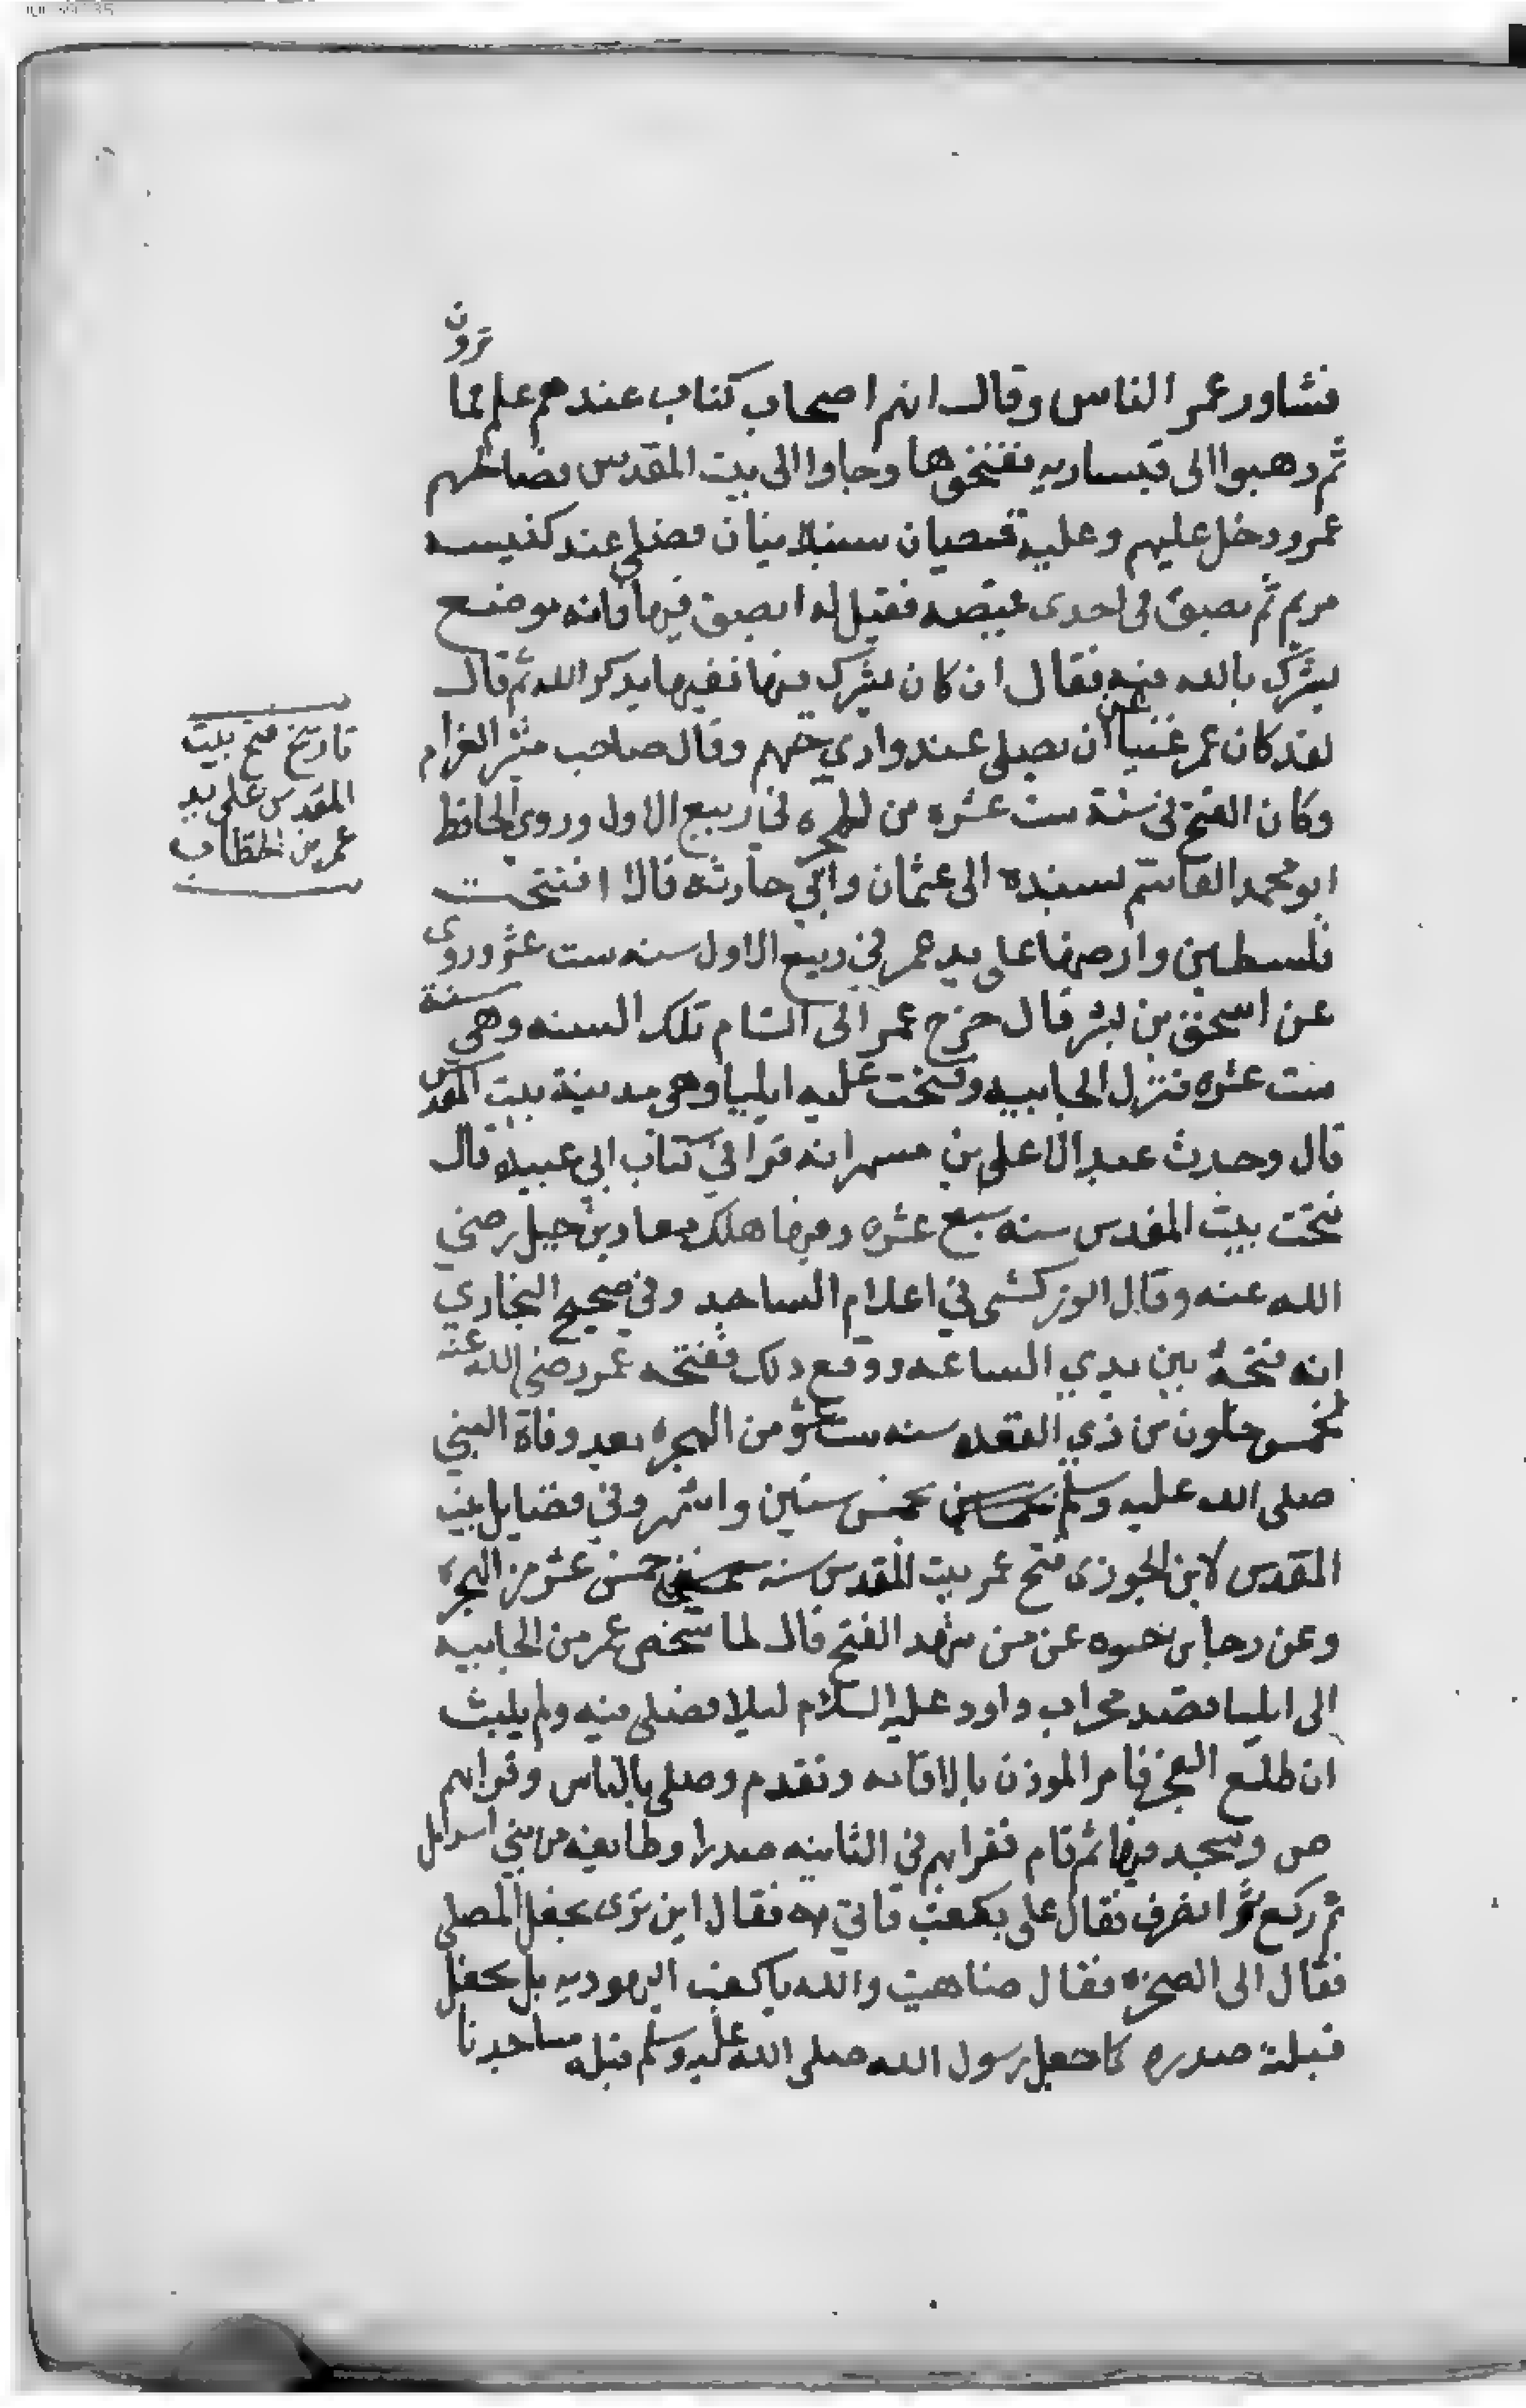 فشاور عمر الناس وقال انهم اصحاب كتاب عندهم علم فما ترون
ثم ذهبوا الى قيساريه ففتحوها وجاوا الى بيت المقدس فصالحهم
عمر ودخل عليهم وعليه قميصان سنبلانيان فصلى عند كنيسه
مريم ثم بصق في احدى قميصه فقيل له ابصق فيها فانه موضع
يشرك بالله فيه فقال ان كان يشرك فيها ففيها يذكر الله ثم قال
لقد كان عمر غنيا عن ان يصلي عند وادي جهنم وقال صاحب مثير الغرام
وكان الفتح في سنة ست عشره من الهجره في ربيع الاول وروى الحافظ
ابو محمد القاسم بسنده الى عثمان وابي حارثه قالا افتتحت
فلسطين وارضها على يد عمر في ربيع الاول سنه ست عشر وروى
عن اسحق بن بشر قال خرج عمر الى الشام تلك السنه وهي سنة
ست عشره فنزل الجابيه وفتحت عليه ايليا وهي مدينة بيت المقدس
قال وحدث عبد الاعلى بن مسهر انه قرا في كتاب ابي عبيده قال
فتحت بيت المقدس سنه سبع عشره وفيها هلك معاذ بن جبل رضي
الله عنه وقال الزركشي في اعلام الساجد وفي صحيح البخاري
انه فتحه بين يدي الساعه ووقع ذلك ففتحه عمر رضي الله عنه
لخمس خلون من ذي القعده سنه ست عشر من الهجره بعد وفاة النبي
صلى الله عليه وسلم بخمس سنين واشهر وفي فضايل بيت
المقدس لابن الجوزى فتح عمر بيت المقدس سنه خمس عشر من الهجره
وعن رجا بن حيوه عن من شهد الفتح قال لما شخص عمر من الجابيه
الى ايليا فقصد محراب داود عليه السلام ليلا فصلى فيه ولم يلبث
ان طلع الفجر فامر الموذن بالاقامه وتقدم وصلى بالناس وقرا بهم
ص وسجد فيها ثم قام فقرا بهم في الثانيه صدرا وطايفه من بني اسرايل
ثم ركع ثم انصرف فقال على بكعب فاتي به فقال اين ترى نجعل المصلى
فقال الى الصخره فقال ضاهيت والله يا كعب اليهوديه بل نجعل
قبلته صدره كما جعل رسول الله صلى الله عليه وسلم قبله مساجدنا
تاريخ فتح بيت
المقدس على يد
عمر بن الخطاب